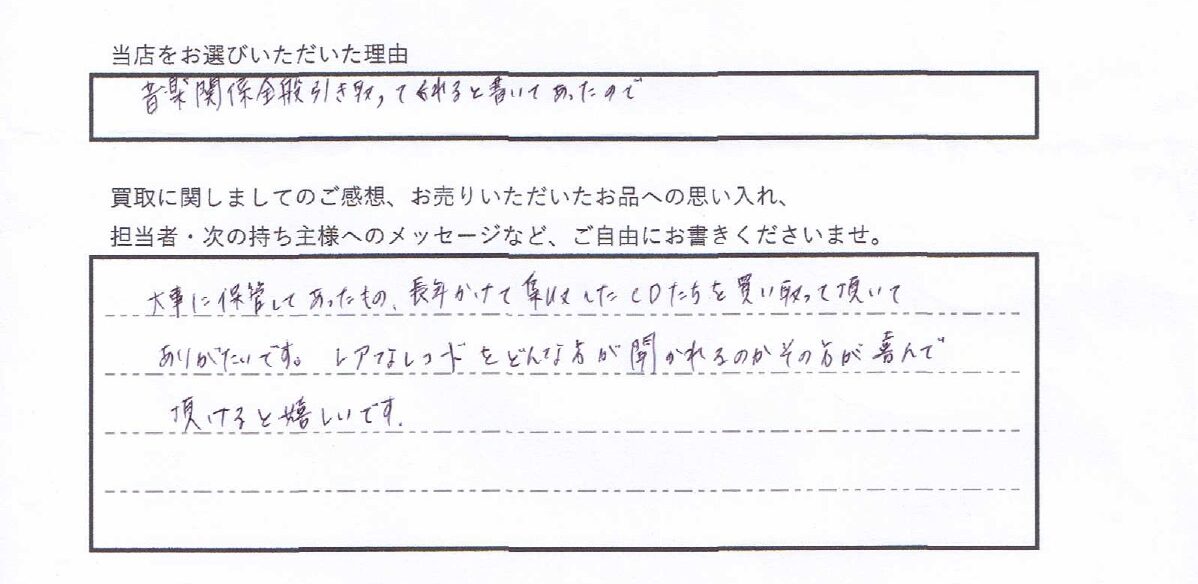 当店をお選びいただいた理由
音楽関係全般引き取ってくれると書いてあったので
買取に関しましてのご感想、お売りいただいたお品への思い入れ、
担当者・次の持ち主様へのメッセージなど、ご自由にお書きくださいませ。
大事に保管してあったもの、長年かけて集収したCDたちを買い取って頂いて
ありがたいです。レアなレコードをどんな方が聞かれるのかその方が喜んで
頂けると嬉しいです.